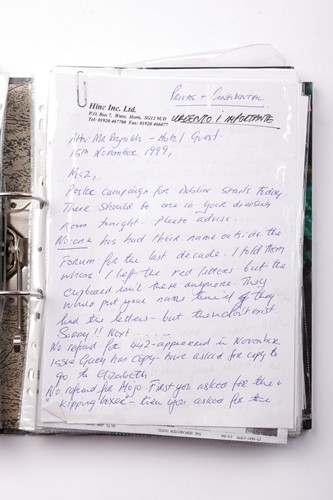 PRIVATE + CONFIDENTIAL
Hinc Inc. Ltd.
P.O. Box 7, Ware, Herts, SG12 9UD
Tel: 01920 467780 Fax: 01920 466077
URGENTO i IMPORTANTE
Attn: Mr Reynolds - Hotel Guest.
15th November 1999,
Poster campaign for Dublin starts today.
There should be one in your dressing
room tonight. Please advise.
No one has had their name outside the
Forum for the last decade. I told them
where I left the red letters but the
cupboard isn't there anymore. They
would put your name there if they
had the letters - but they don't exist
Sorry!! Next ......
No refund for 442 - appeared in November
issue Guy has copy - have asked for copy to
go to Elizabeth.
No refund for Mojo. First you asked for the
"kipping boxer" - then you asked for the